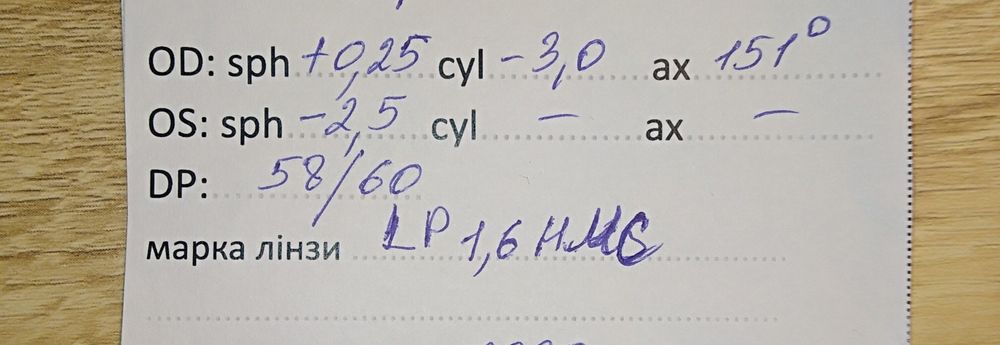 OD: sph +0,25 cyl -3,0 ax 151°
OS: sph -2,5 cyl — ax —
DP: 58/60
марка лінзи LP 1,6 HMC